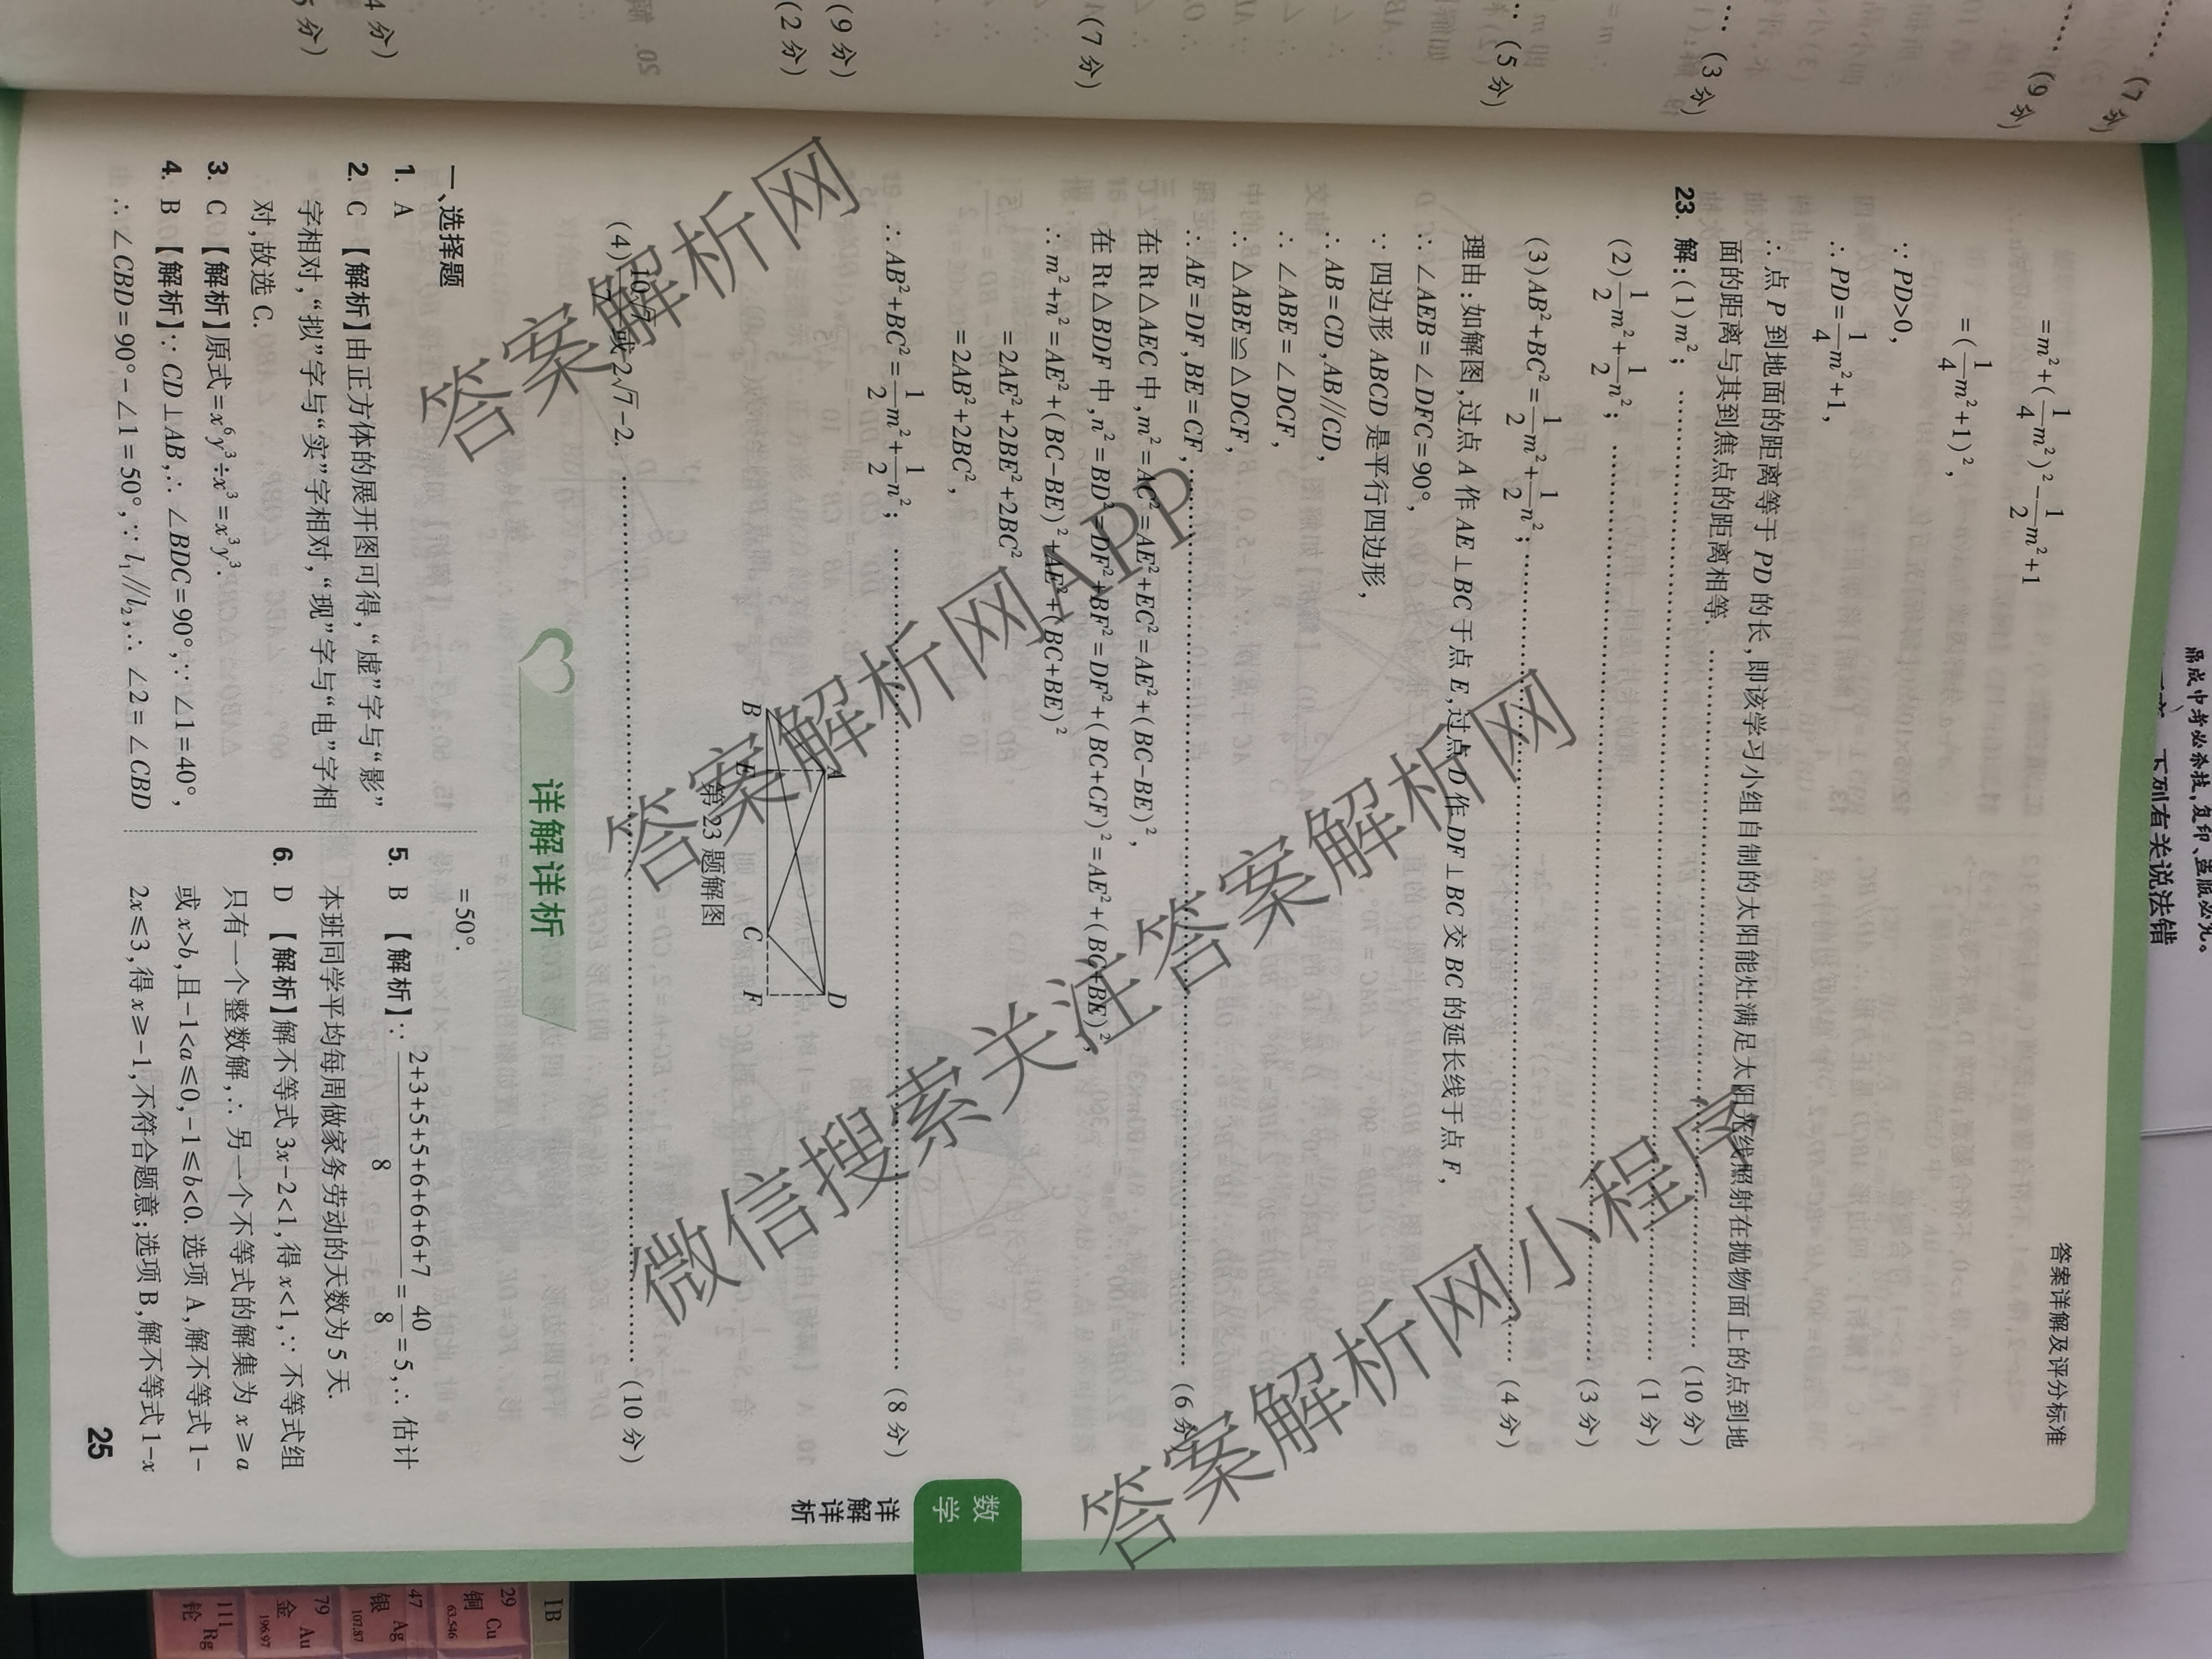 答案详解及评分标准
=m²+(1/4m²)²-1/2m²+1
=(1/4m²+1)²,
∵PD>0,
∴PD=1/4m²+1,
∵点P到地面的距离等于PD的长,即该学习小组自制的太阳能灶满足太阳光线照射在抛物面上的点到地
面的距离与其到焦点的距离相等. (10分)
23. 解:(1)m²; (1分)
(2)1/2m²+1/2n²; (3分)
(3)AB²+BC²=1/2m²+1/2n²; (4分)
理由:如解图,过点A作AE⊥BC于点E,过点D作DF⊥BC交BC的延长线于点F,
∴∠AEB=∠DFC=90°,
∵四边形ABCD是平行四边形,
∴AB=CD,AB//CD,
∴∠ABE=∠DCF,
∴△ABE≌△DCF,
∴AE=DF,BE=CF, (6分)
在Rt△AEC中,m²=AC²=AE²+EC²=AE²+(BC-BE)²,
在Rt△BDF中,n²=BD²=DF²+BF²=DF²+(BC+CF)²=AE²+(BC+BE)²,
∴m²+n²=AE²+(BC-BE)²+AE²+(BC+BE)²
=2AE²+2BE²+2BC²
=2AB²+2BC²,
∴AB²+BC²=1/2m²+1/2n²; (8分)
A D
B E C F
第23题解图
(4)10√7/7或2√7-2. (10分)
详解详析
一、选择题
1. A
2. C 【解析】由正方体的展开图可得,“虚”字与“影”
字相对,“拟”字与“实”字相对,“现”字与“电”字相
对,故选C.
3. C 【解析】原式=x⁶y³÷x³=x³y³.
4. B 【解析】∵CD⊥AB,∴∠BDC=90°,∵∠1=40°,
∴∠CBD=90°-∠1=50°,∵l₁//l₂,∴∠2=∠CBD
=50°.
5. B 【解析】∵(2+3+5+5+6+6+6+7)/8=40/8=5,∴估计
本班同学平均每周做家务劳动的天数为5天.
6. D 【解析】解不等式3x-2<1,得x<1,∵不等式组
只有一个整数解,∴另一个不等式的解集为x≥a
或x>b,且-1<a≤0,-1≤b<0.选项A,解不等式1-
2x≤3,得x≥-1,不符合题意;选项B,解不等式1-x
25
数学
详解详析
(7分)
(9分)
(3分)
(5分)
(7分)
(9分)
(2分)
4分)
5分)
鼎成中考必杀技,复印、盗版必究。
下列有关说法错
IB
29 Cu
铜
63.546
47 Ag
银
107.87
79 Au
金
196.97
111 Rg
𬬭
答案解析网
答案解析网APP
微信搜索关注答案解析网
答案解析网小程序